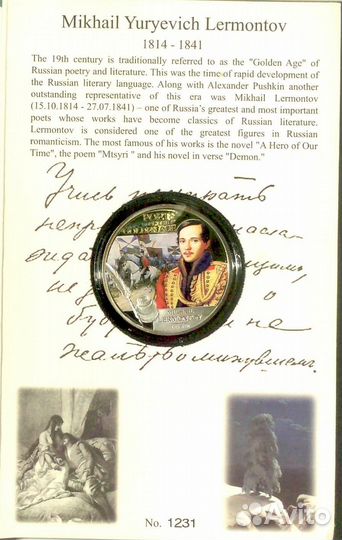 Mikhail Yuryevich Lermontov
1814 - 1841
The 19th century is traditionally referred to as the "Golden Age" of
Russian poetry and literature. This was the time of rapid development of
the Russian literary language. Along with Alexander Pushkin another
outstanding representative of this era was Mikhail Lermontov
(15.10.1814 - 27.07.1841) – one of Russia's greatest and most important
poets whose works have become classics of Russian literature.
Lermontov is considered one of the greatest figures in Russian
romanticism. The most famous of his works is the novel "A Hero of Our
Time", the poem "Mtsyri " and his novel in verse "Demon."
Учись
не
о
не
жалъ
минувшем.
No. 1231
Avito